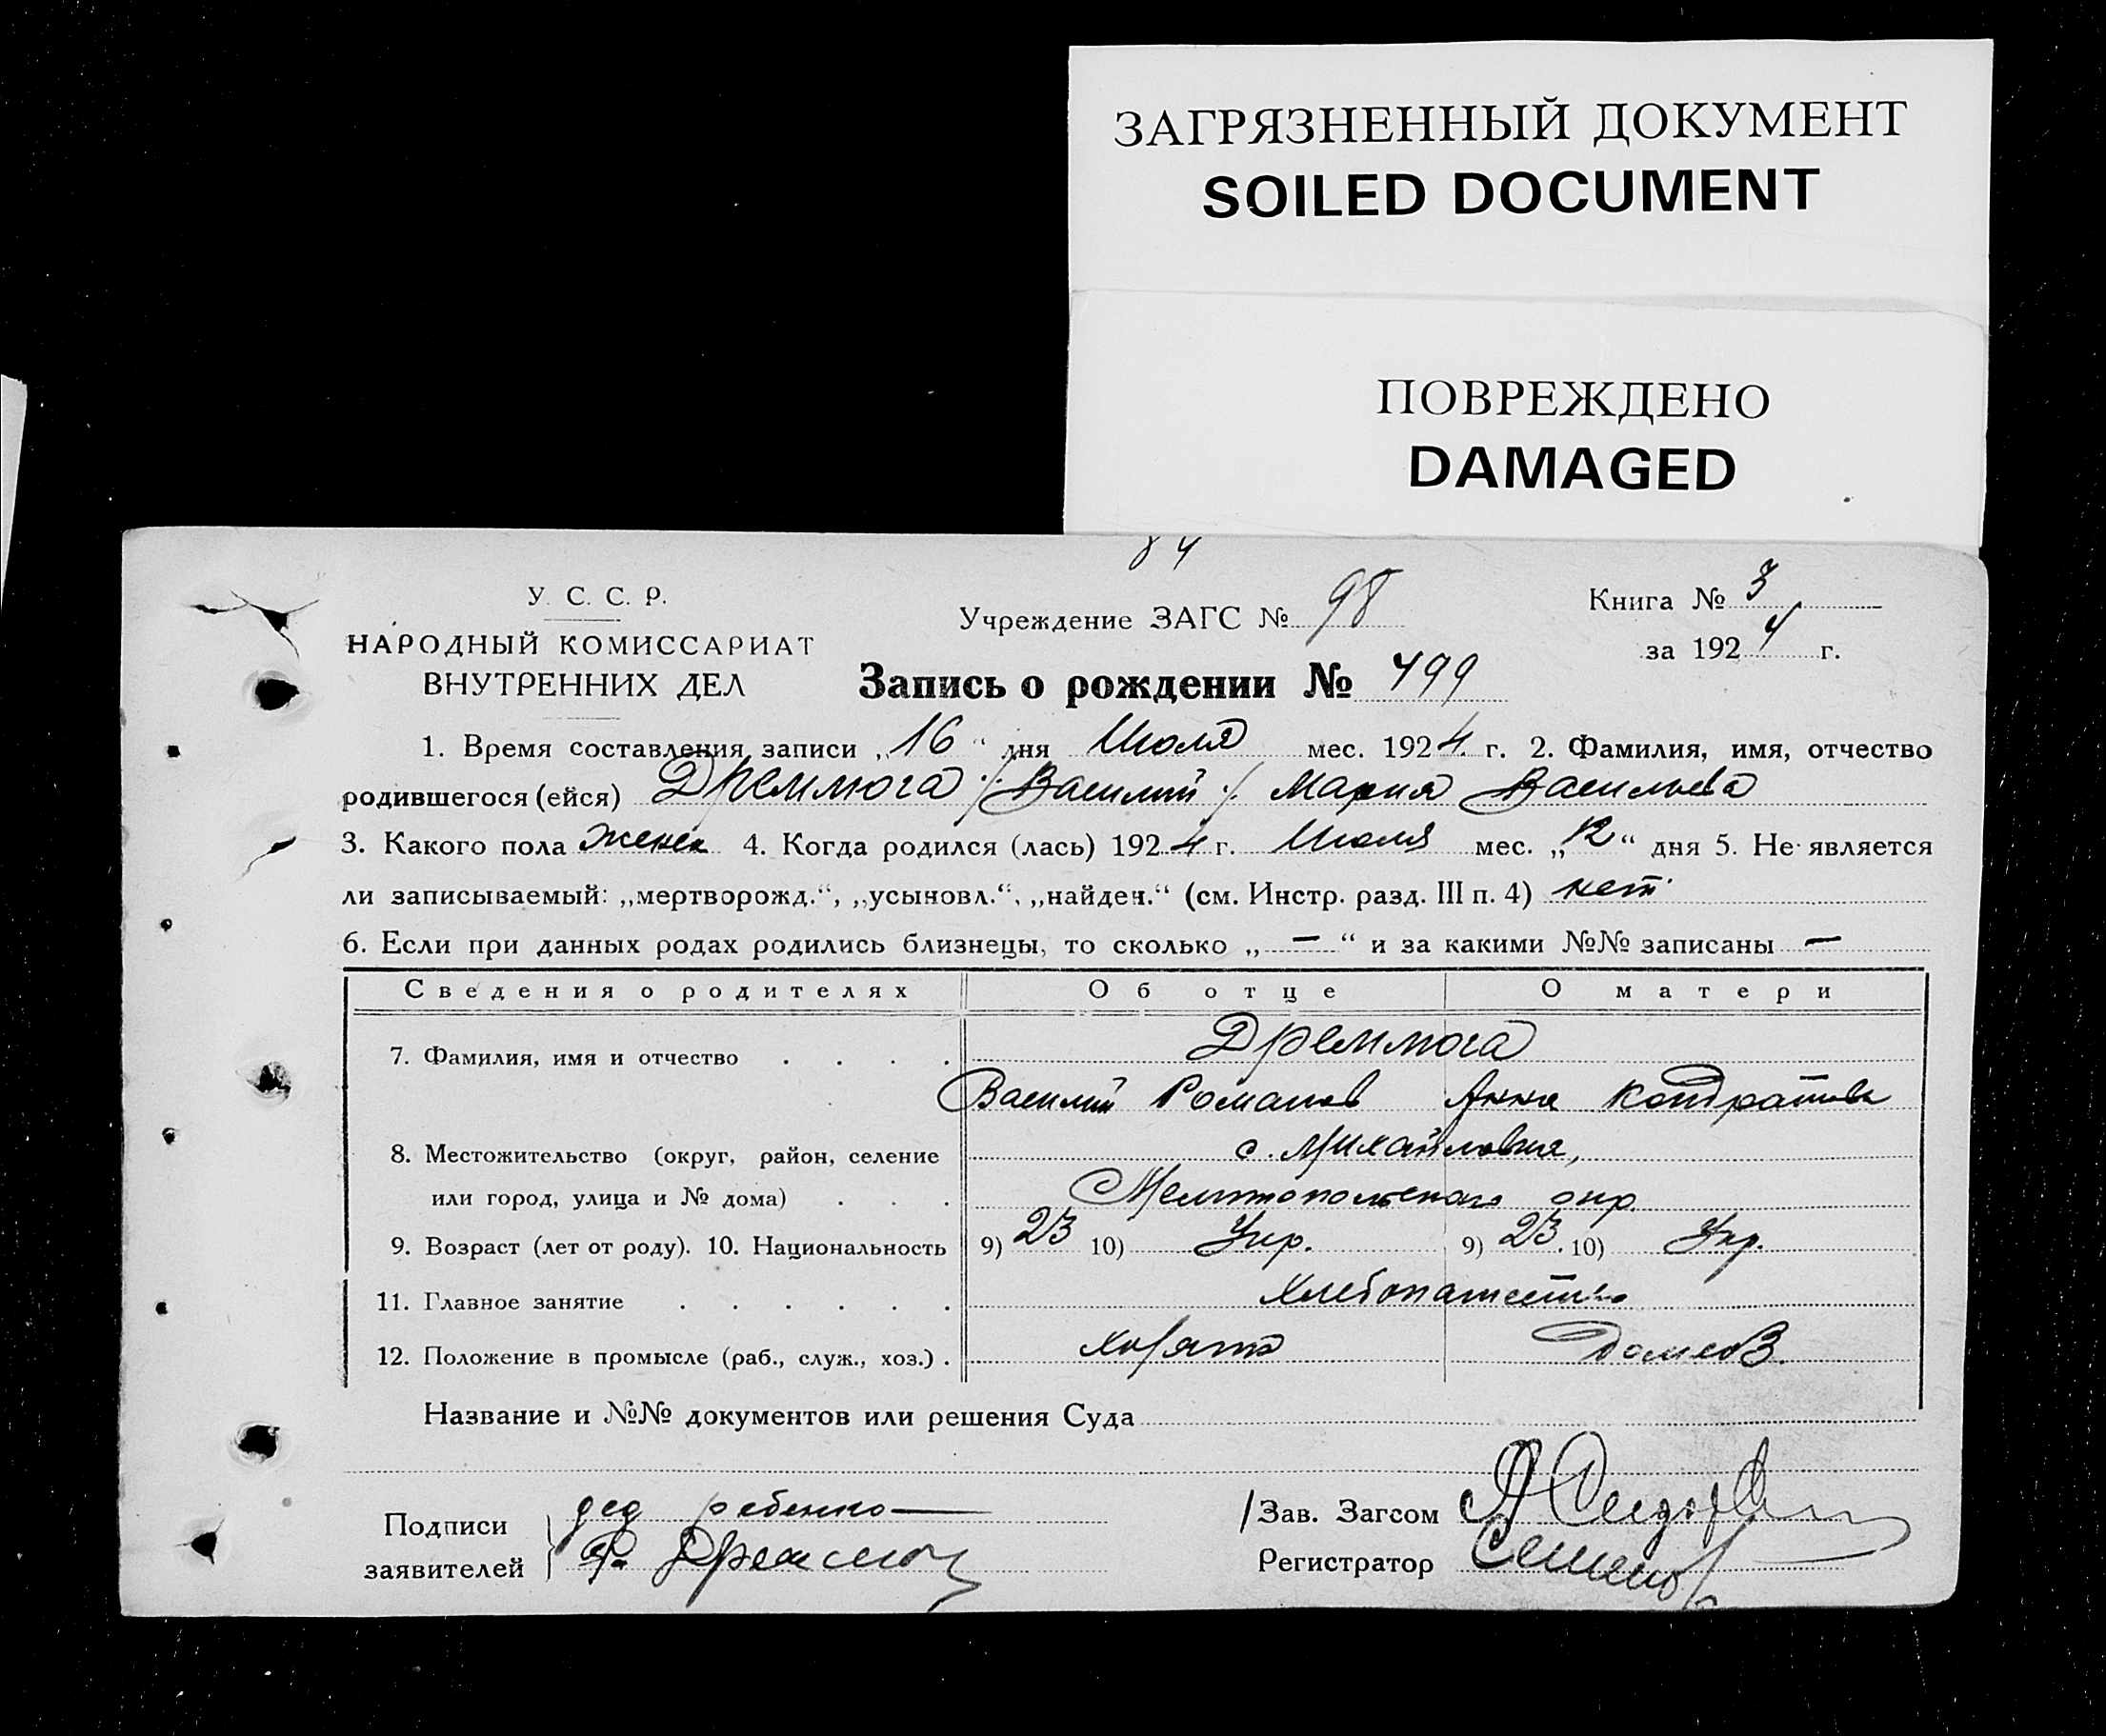 ЗАГРЯЗНЕННЫЙ ДОКУМЕНТ
SOILED DOCUMENT
ПОВРЕЖДЕНО
DAMAGED
84
У. С. С. Р.
НАРОДНЫЙ КОМИССАРИАТ
ВНУТРЕННИХ ДЕЛ
Учреждение ЗАГС № 98
Книга № 3
за 1924 г.
Запись о рождении № 499
1. Время составления записи „16“ дня Июля мес. 1924 г. 2. Фамилия, имя, отчество
родившегося (ейся) Дремлюга /Василий/ Мария Васильева
3. Какого пола женск 4. Когда родился (лась) 1924 г. Июля мес. „12“ дня 5. Не является
ли записываемый: „мертворожд.“, „усыновл.“, „найден.“ (см. Инстр. разд. III п. 4) нет
6. Если при данных родах родились близнецы, то сколько „—“ и за какими №№ записаны —
Сведения о родителях Об отце О матери
7. Фамилия, имя и отчество . . . . Дремлюга
Василий Романов Анна Кондратьев
8. Местожительство (округ, район, селение с. Михайловка,
или город, улица и № дома) . . . Мелитопольского окр
9. Возраст (лет от роду). 10. Национальность 9) 23 10) Укр. 9) 23. 10) Укр.
11. Главное занятие . . . . . . Хлебопашество
12. Положение в промысле (раб., служ., хоз.) . Домхоз.
Название и №№ документов или решения Суда
Подписи заявителей } дед ребенка —
Дремлюга
Зав. Загсом
Регистратор